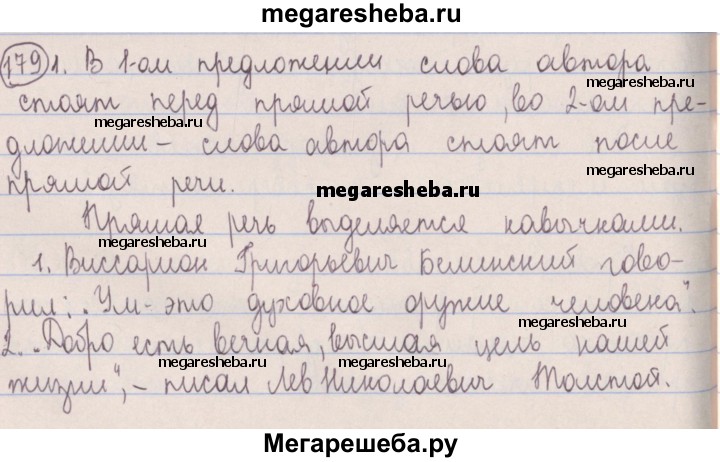 megaresheba.ru
179 1. В 1-ом предложении слова автора
megaresheba.ru
стоят перед прямой речью, во 2-ом пре-
megaresheba.ru
дложении – слова автора стоят после
megaresheba.ru
прямой речи.
megaresheba.ru
Прямая речь выделяется кавычками.
megaresheba.ru
megaresheba.ru
1. Виссарион Григорьевич Белинский гово-
рил: „Ум – это духовное оружие человека“.
megaresheba.ru
2. „Добро есть вечная, высшая цель нашей
megaresheba.ru
megaresheba.ru
жизни“, – писал Лев Николаевич Толстой.
Мегарешеба.ру